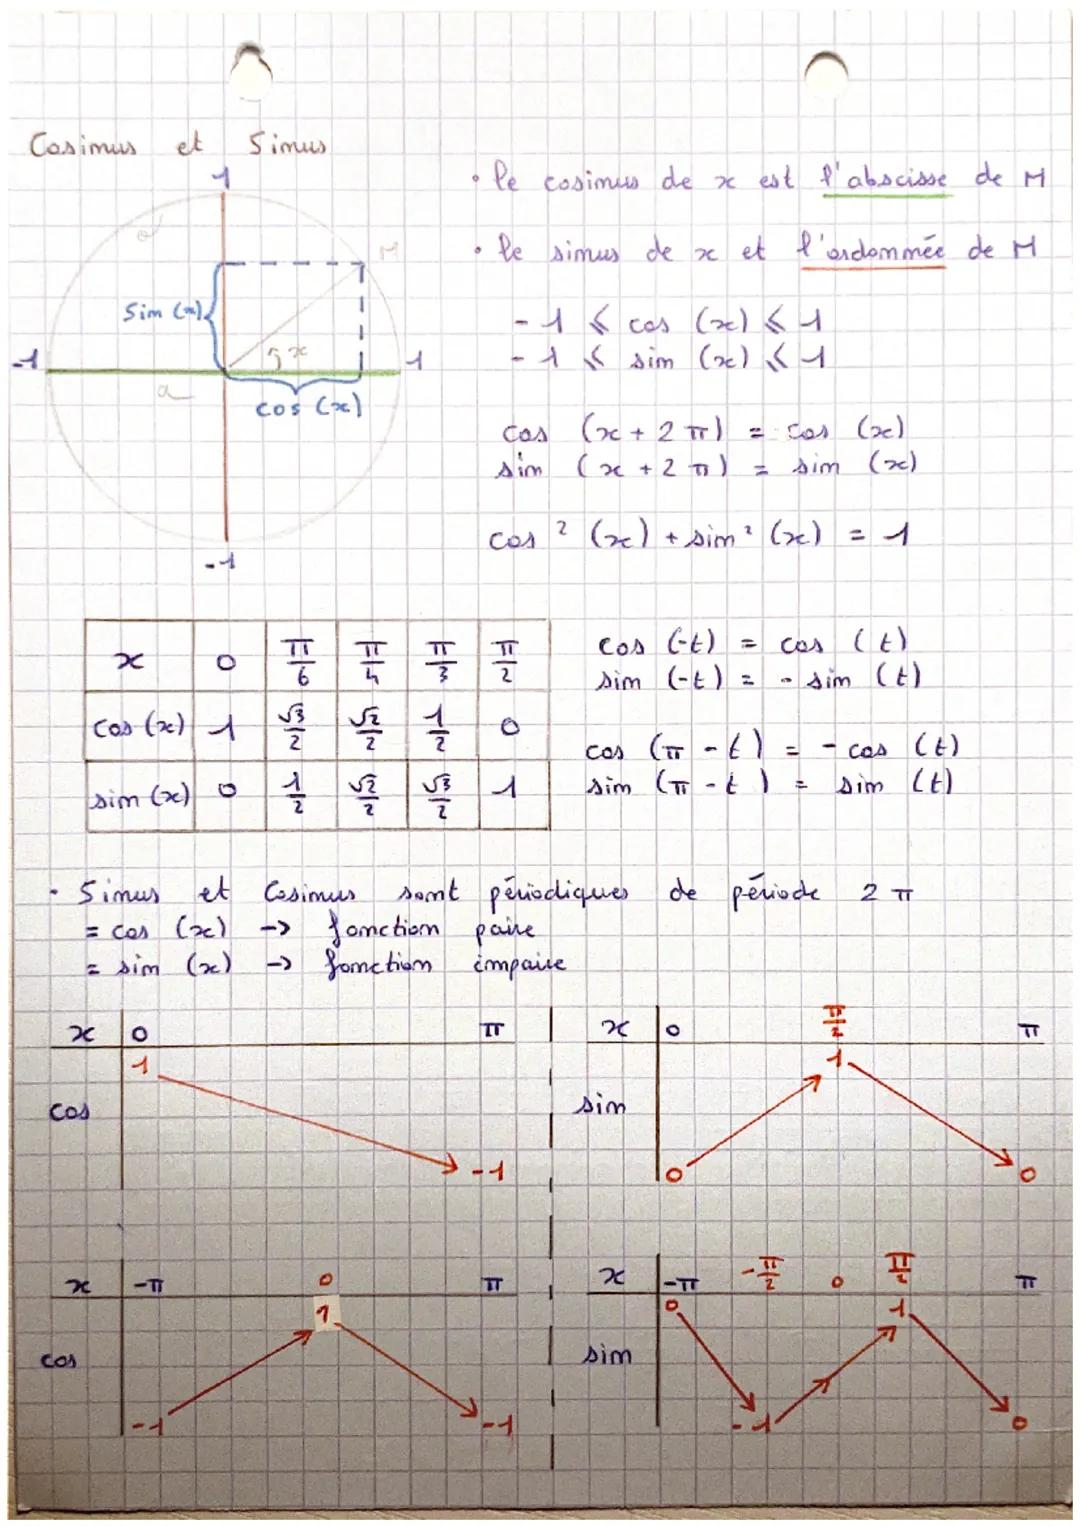 Cosinus et Sinus
1
M
sin (x)
x
-1
1
a
cos (x)
-1
• le cosinus de x est l'abscisse de M
• le sinus de x et l'ordonnée de M
-1 ⩽ cos (x) ⩽ 1
-1 ⩽ sin (x) ⩽ 1
cos (x + 2π) = cos (x)
sin (x + 2π) = sin (x)
cos² (x) + sin² (x) = 1
x 0 π/6 π/4 π/3 π/2
cos (x) 1 √3/2 √2/2 1/2 0
sin (x) 0 1/2 √2/2 √3/2 1
cos (-t) = cos (t)
sin (-t) = - sin (t)
cos (π - t) = - cos (t)
sin (π - t) = sin (t)
• Sinus et Cosinus sont périodiques de période 2π
= cos (x) -> fonction paire
= sin (x) -> fonction impaire
x 0 π
1
cos
-1
x 0 π/2 π
1
sin
0 0
x -π 0 π
1
cos
-1 -1
x -π -π/2 0 π/2 π
0 1
sin
-1 0